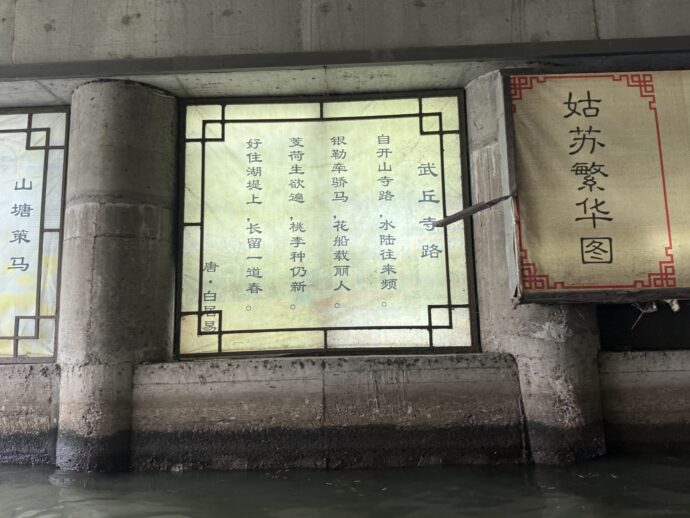 姑苏繁华图
武丘寺路
自开山寺路，水陆往来频。
银勒牵骄马，花船载丽人。
芰荷生欲遍，桃李种仍新。
好住湖堤上，长留一道春。
唐·白居易
山塘策马